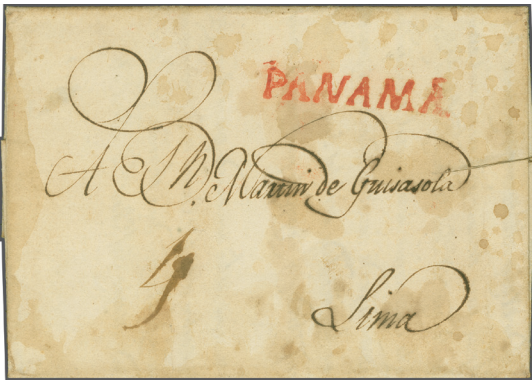 PANAMA
A Sn. D. Martin de Guisasola
4
Lima